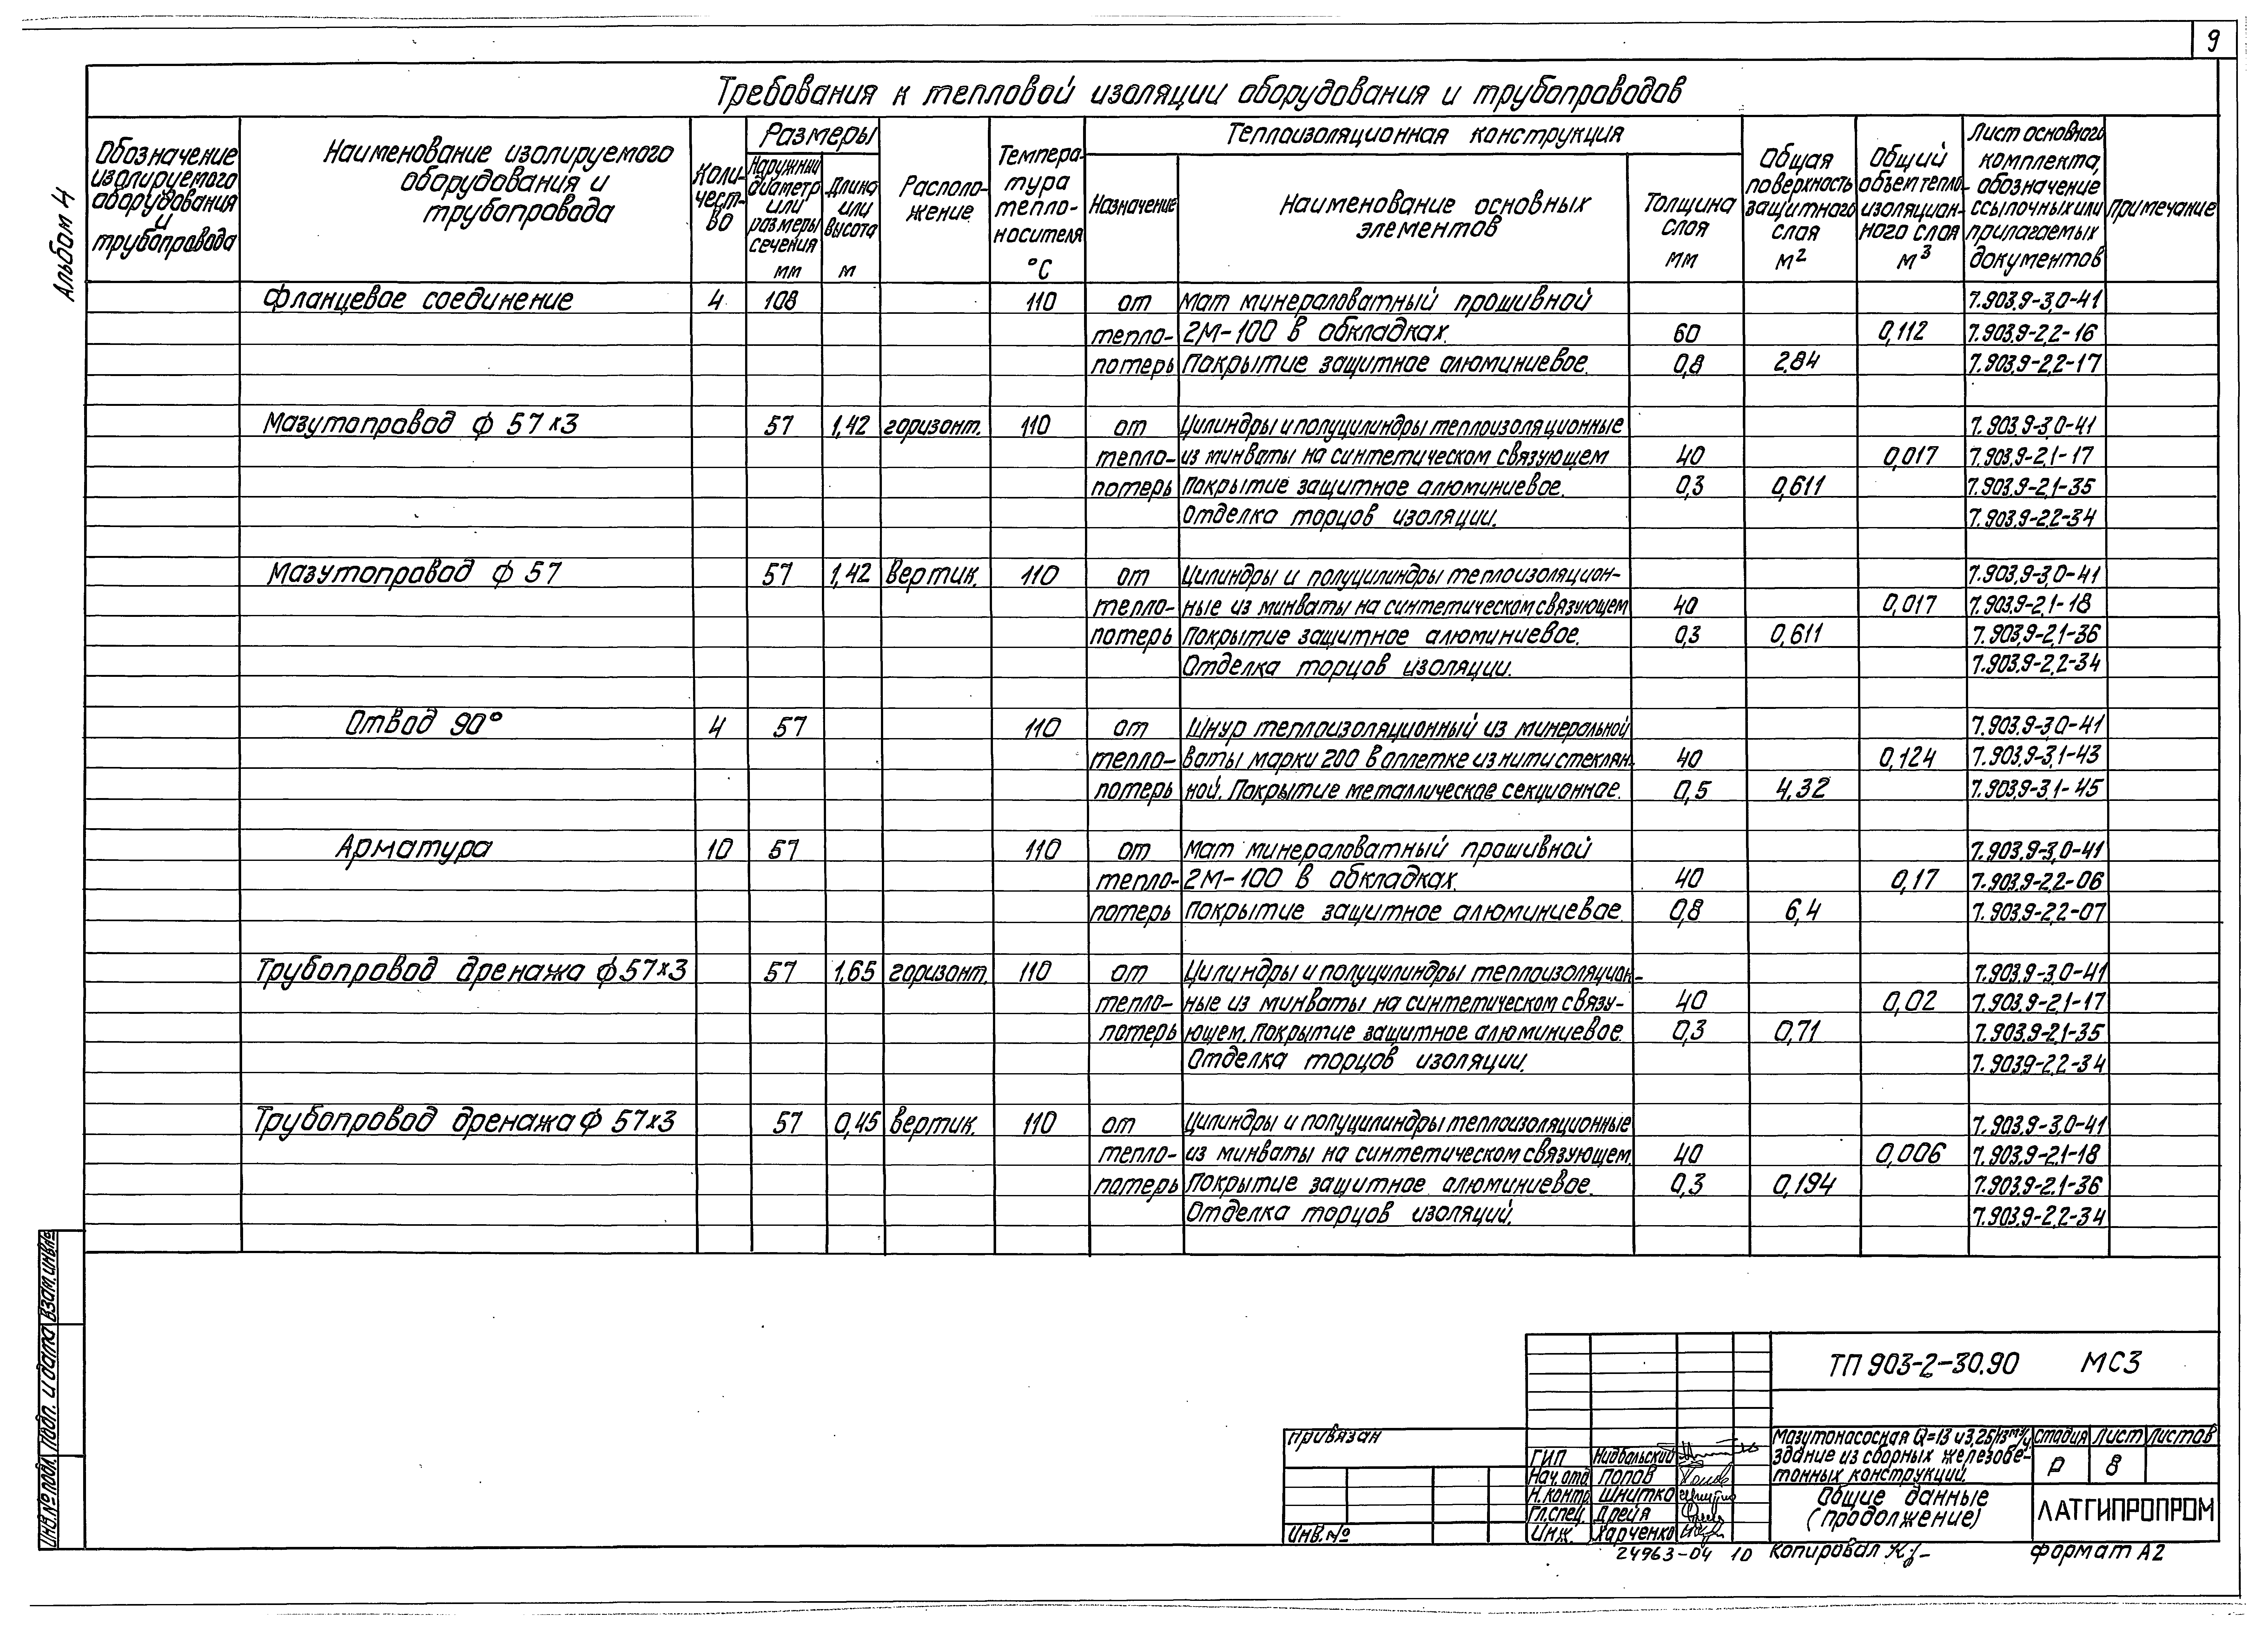 9
Альбом 4
Требования к тепловой изоляции оборудования и трубопроводов
Обозначение изолируемого оборудования и трубопровода
Наименование изолируемого оборудования и трубопровода
Количест-во
Размеры
Наружный диаметр или размеры сечения мм
Длина или высота м
Располо-жение
Темпера-тура тепло-носителя °С
Теплоизоляционная конструкция
Назначение
Наименование основных элементов
Толщина слоя мм
Общая поверхность защитного слоя м²
Общий объем тепло-изоляцион-ного слоя м³
Лист основного комплекта, обозначение ссылочных или прилагаемых документов
Примечание
Фланцевое соединение 4 108 110 от Мат минераловатный прошивной 7.903.9-3,0-41
тепло- 2М-100 в обкладках. 60 0,112 7.903.9-2,2-16
потерь Покрытие защитное алюминиевое. 0,8 2,84 7.903.9-2,2-17
Мазутопровод ф 57х3 57 1,42 горизонт. 110 от Цилиндры и полуцилиндры теплоизоляционные 7.903.9-3,0-41
тепло- из минваты на синтетическом связующем 40 0,017 7.903.9-2,1-17
потерь Покрытие защитное алюминиевое. 0,3 0,611 7.903.9-2,1-35
Отделка торцов изоляции. 7.903.9-2,2-34
Мазутопровод ф 57 57 1,42 вертик. 110 от Цилиндры и полуцилиндры теплоизоляцион- 7.903.9-3,0-41
тепло- ные из минваты на синтетическом связующем 40 0,017 7.903.9-2,1-18
потерь Покрытие защитное алюминиевое. 0,3 0,611 7.903.9-2,1-36
Отделка торцов изоляции. 7.903.9-2,2-34
Отвод 90° 4 57 110 от Шнур теплоизоляционный из минеральной 7.903.9-3,0-41
тепло- ваты марки 200 в оплетке из нити стеклян- 40 0,124 7.903.9-3,1-43
потерь ной. Покрытие металлическое секционное. 0,5 4,32 7.903.9-3,1-45
Арматура 10 57 110 от Мат минераловатный прошивной 7.903.9-3,0-41
тепло- 2М-100 в обкладках. 40 0,17 7.903.9-2,2-06
потерь Покрытие защитное алюминиевое. 0,8 6,4 7.903.9-2,2-07
Трубопровод дренажа ф 57х3 57 1,65 горизонт. 110 от Цилиндры и полуцилиндры теплоизоляцион- 7.903.9-3,0-41
тепло- ные из минваты на синтетическом связу- 40 0,02 7.903.9-2,1-17
потерь ющем. Покрытие защитное алюминиевое. 0,3 0,71 7.903.9-2,1-35
Отделка торцов изоляции. 7.903.9-2,2-34
Трубопровод дренажа ф 57х3 57 0,45 вертик. 110 от Цилиндры и полуцилиндры теплоизоляционные 7.903.9-3,0-41
тепло- из минваты на синтетическом связующем. 40 0,006 7.903.9-2,1-18
потерь Покрытие защитное алюминиевое. 0,3 0,194 7.903.9-2,1-36
Отделка торцов изоляций. 7.903.9-2,2-34
Взам. инв.№
Подп. и дата
Инв.№ подл.
Привязан
Инв.№
ГИП Нидбальский
Нач.отд Попов
Н.контр Шнитко
Гл.спец. Дрейя
Инж. Харченко
ТП 903-2-30.90 МС3
Мазутонасосная Q=13 и 3,25 м³/ч
здание из сборных железобе-
тонных конструкций.
Стадия Лист Листов
Р 8
Общие данные
(продолжение)
ЛАТГИПРОПРОМ
24963-04 10 Копировал Формат А2